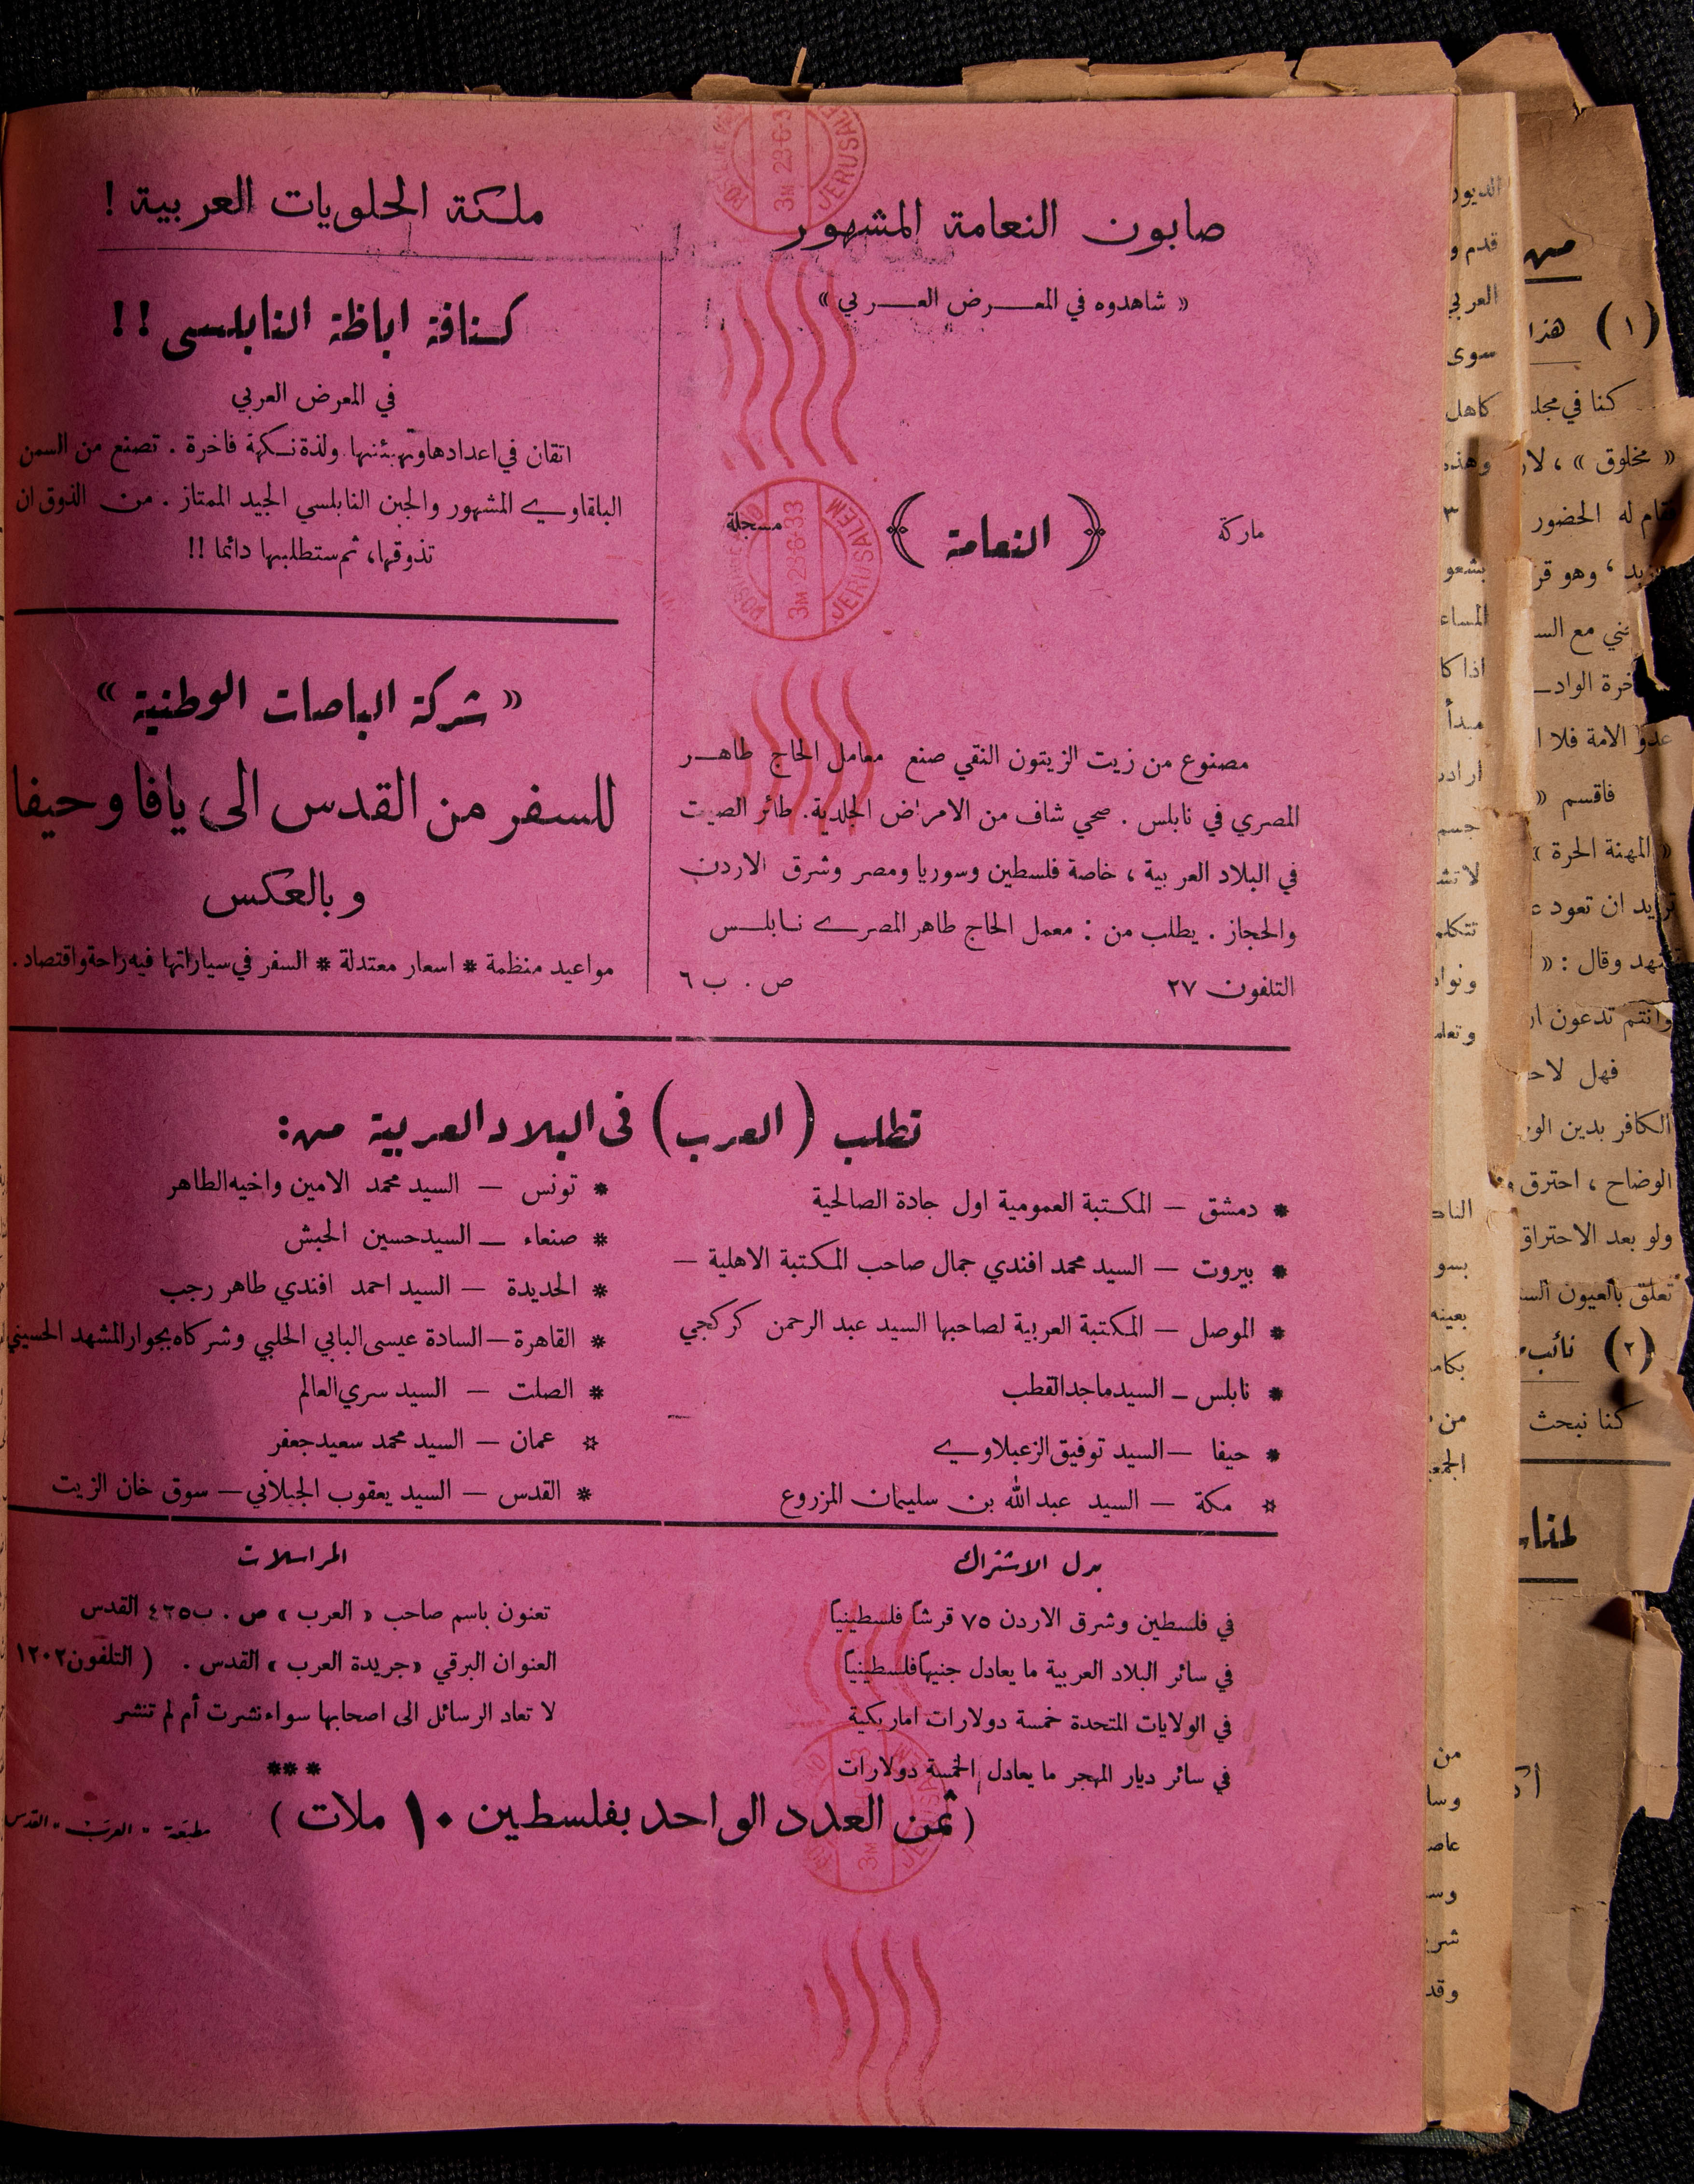 صابون النعامة المشهور
« شاهدوه في المعـــرض العـــربي »
ماركة ( النعامة ) مسجلة
مصنوع من زيت الزيتون النقي صنع معامل الحاج طاهــر
المصري في نابلس . صحي شاف من الامراض الجلدية. طائر الصيت
في البلاد العربية ، خاصة فلسطين وسوريا ومصر وشرق الاردن
والحجاز . يطلب من : معمل الحاج طاهر المصرے نــابلــس
التلفون ٢٧ ص . ب ٦
ملكة الحلويات العربية !
كنافة اباظة النابلسى !!
في المعرض العربي
اتقان في اعدادها وتهيئتها. ولذة نكهة فاخرة . تصنع من السمن
البلقاوے المشهور والجبن النابلسي الجيد الممتاز . من الذوق ان
تذوقها، ثم ستطلبها دائما !!
« شركة الباصات الوطنية »
للسفر من القدس الى يافا وحيفا
وبالعكس
مواعيد منظمة * اسعار معتدلة * السفر في سياراتها فيه راحة واقتصاد .
تطلب ( العرب ) فى البلاد العربية من:
* دمشق — المكتبة العمومية اول جادة الصالحية
* بيروت — السيد محمد افندي جمال صاحب المكتبة الاهلية —
* الموصل — المكتبة العربية لصاحبها السيد عبد الرحمن كركجي
* نابلس — السيد ماجد القطب
* حيفا — السيد توفيق الزعبلاوے
* مكة — السيد عبد الله بن سليمان المزروع
* تونس — السيد محمد الامين واخيه الطاهر
* صنعاء — السيد حسين الحبش
* الحديدة — السيد احمد افندي طاهر رجب
* القاهرة — السادة عيسى البابي الحلبي وشركاه بجوار المشهد الحسيني
* الصلت — السيد سري العالم
* عمان — السيد محمد سعيد جعفر
* القدس — السيد يعقوب الجيلاني — سوق خان الزيت
بدل الاشتراك
في فلسطين وشرق الاردن ٧٥ قرشاً فلسطينياً
في سائر البلاد العربية ما يعادل جنيهاً فلسطينياً
في الولايات المتحدة خمسة دولارات اماريكية
في سائر ديار المهجر ما يعادل الخمسة دولارات
المراسلات
تعنون باسم صاحب « العرب » ص . ب ٤٢٥ القدس
العنوان البرقي «جريدة العرب» القدس . ( التلفون ١٢٠٢
لا تعاد الرسائل الى اصحابها سواء نشرت أم لم تنشر
***
( ثمن العدد الواحد بفلسطين ١٠ ملات )
مطبعة - العرب - القدس
JERUSALEM
3M 23-6-33